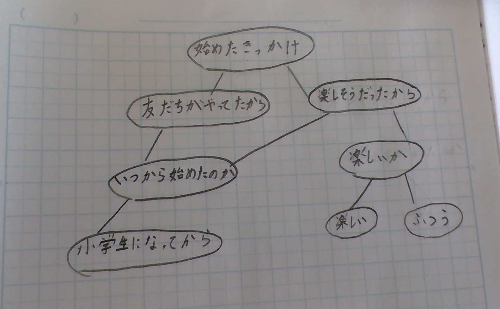 始めたきっかけ
友だちがやってたから
楽しそうだったから
楽しいか
いつから始めたのか
楽しい
ふつう
小学生になってから